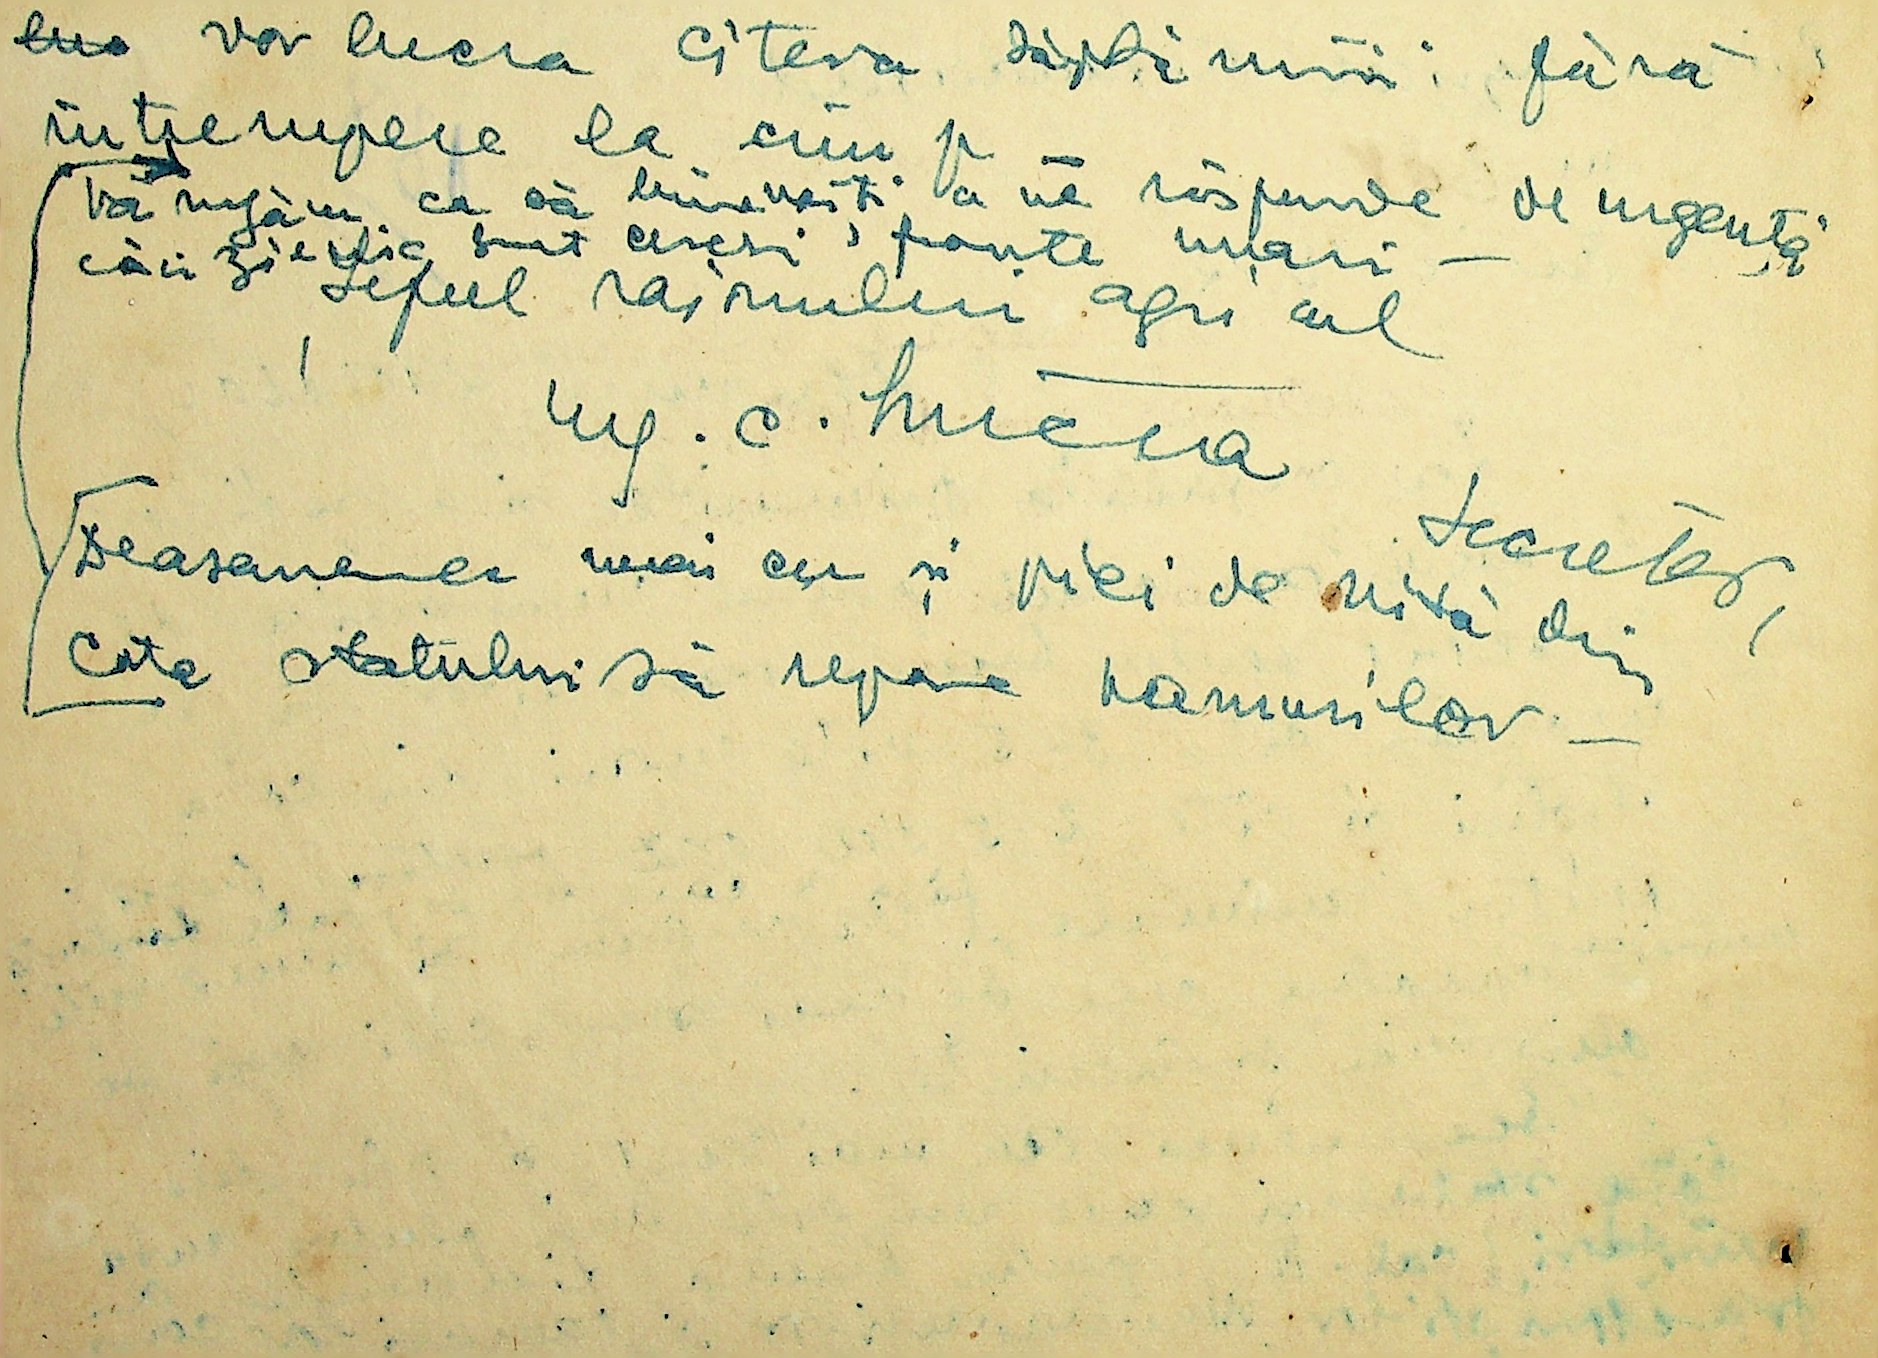 vor lucra cîteva săptămîni fără
întrerupere la cîmp —
Vă rugăm ca să binevoiți a ne răspunde de urgență
căci zilnic sunt cereri foarte mari —
Șeful raionului agricol
Ing. C.
Secretar,
Deasemenea mai cer și piei de vită din
Cota statului să repare hamurilor —